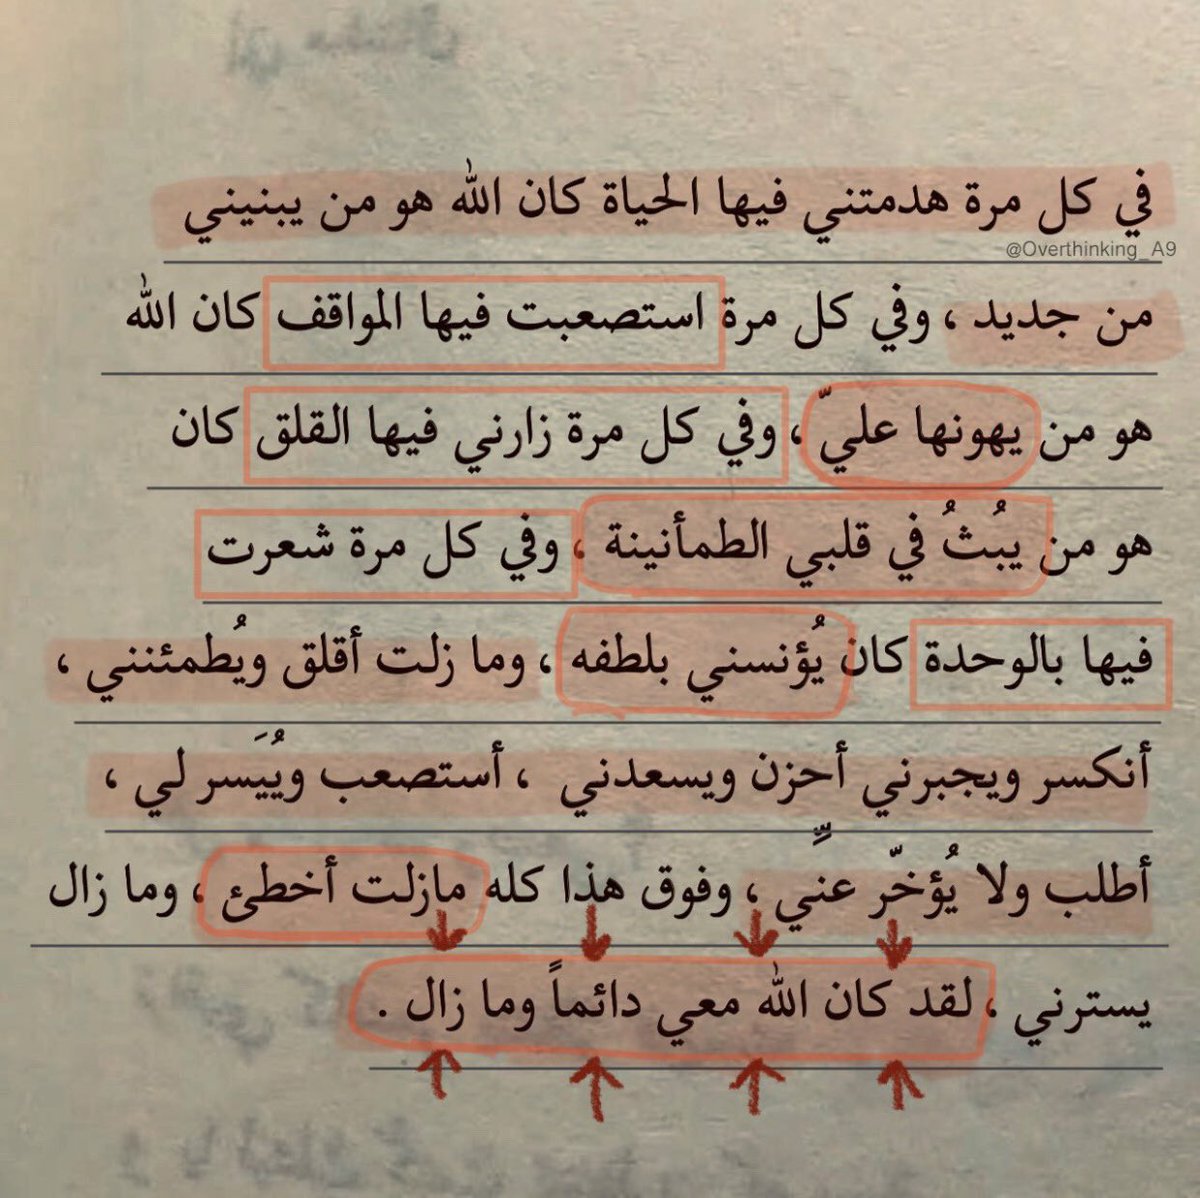 في كل مرة هدمتني فيها الحياة كان الله هو من يبنيني
@Overthinking_A9
من جديد ، وفي كل مرة استصعبت فيها المواقف كان الله
هو من يهونها عليّ ، وفي كل مرة زارني فيها القلق كان
هو من يبُثُ في قلبي الطمأنينة ، وفي كل مرة شعرت
فيها بالوحدة كان يُؤنسني بلطفه ، وما زلت أقلق ويُطمئنني ،
أنكسر ويجبرني أحزن ويسعدني ، أستصعب ويُيَسر لي ،
أطلب ولا يُؤخّر عنّيِ ، وفوق هذا كله مازلت أخطئ ، وما زال
يسترني ، لقد كان الله معي دائماً وما زال .